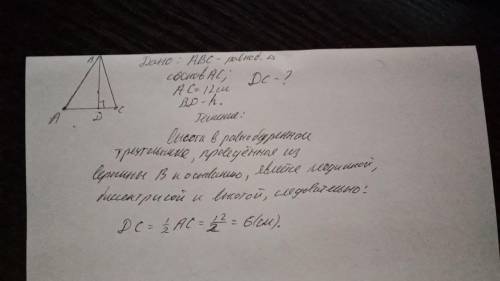 B
A D C
Дано: ABC - равноб. Δ
с основ AC;
AC = 12 см
BD - h.
DC - ?
Решение:
Высота в равнобедренном
треугольнике, проведённая из
вершины B к основанию, является медианой,
биссектрисой и высотой, следовательно:
DC = 1/2 AC = 12/2 = 6 (см).